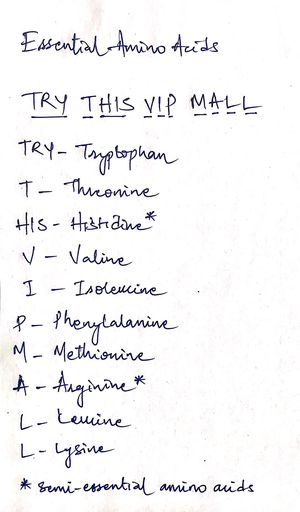 Essential Amino Acids
TRY THIS VIP MALL
TRY - Tryptophan
T - Threonine
HIS - Histidine*
V - Valine
I - Isoleucine
P - Phenylalanine
M - Methionine
A - Arginine*
L - Leucine
L - Lysine
* semi-essential amino acids